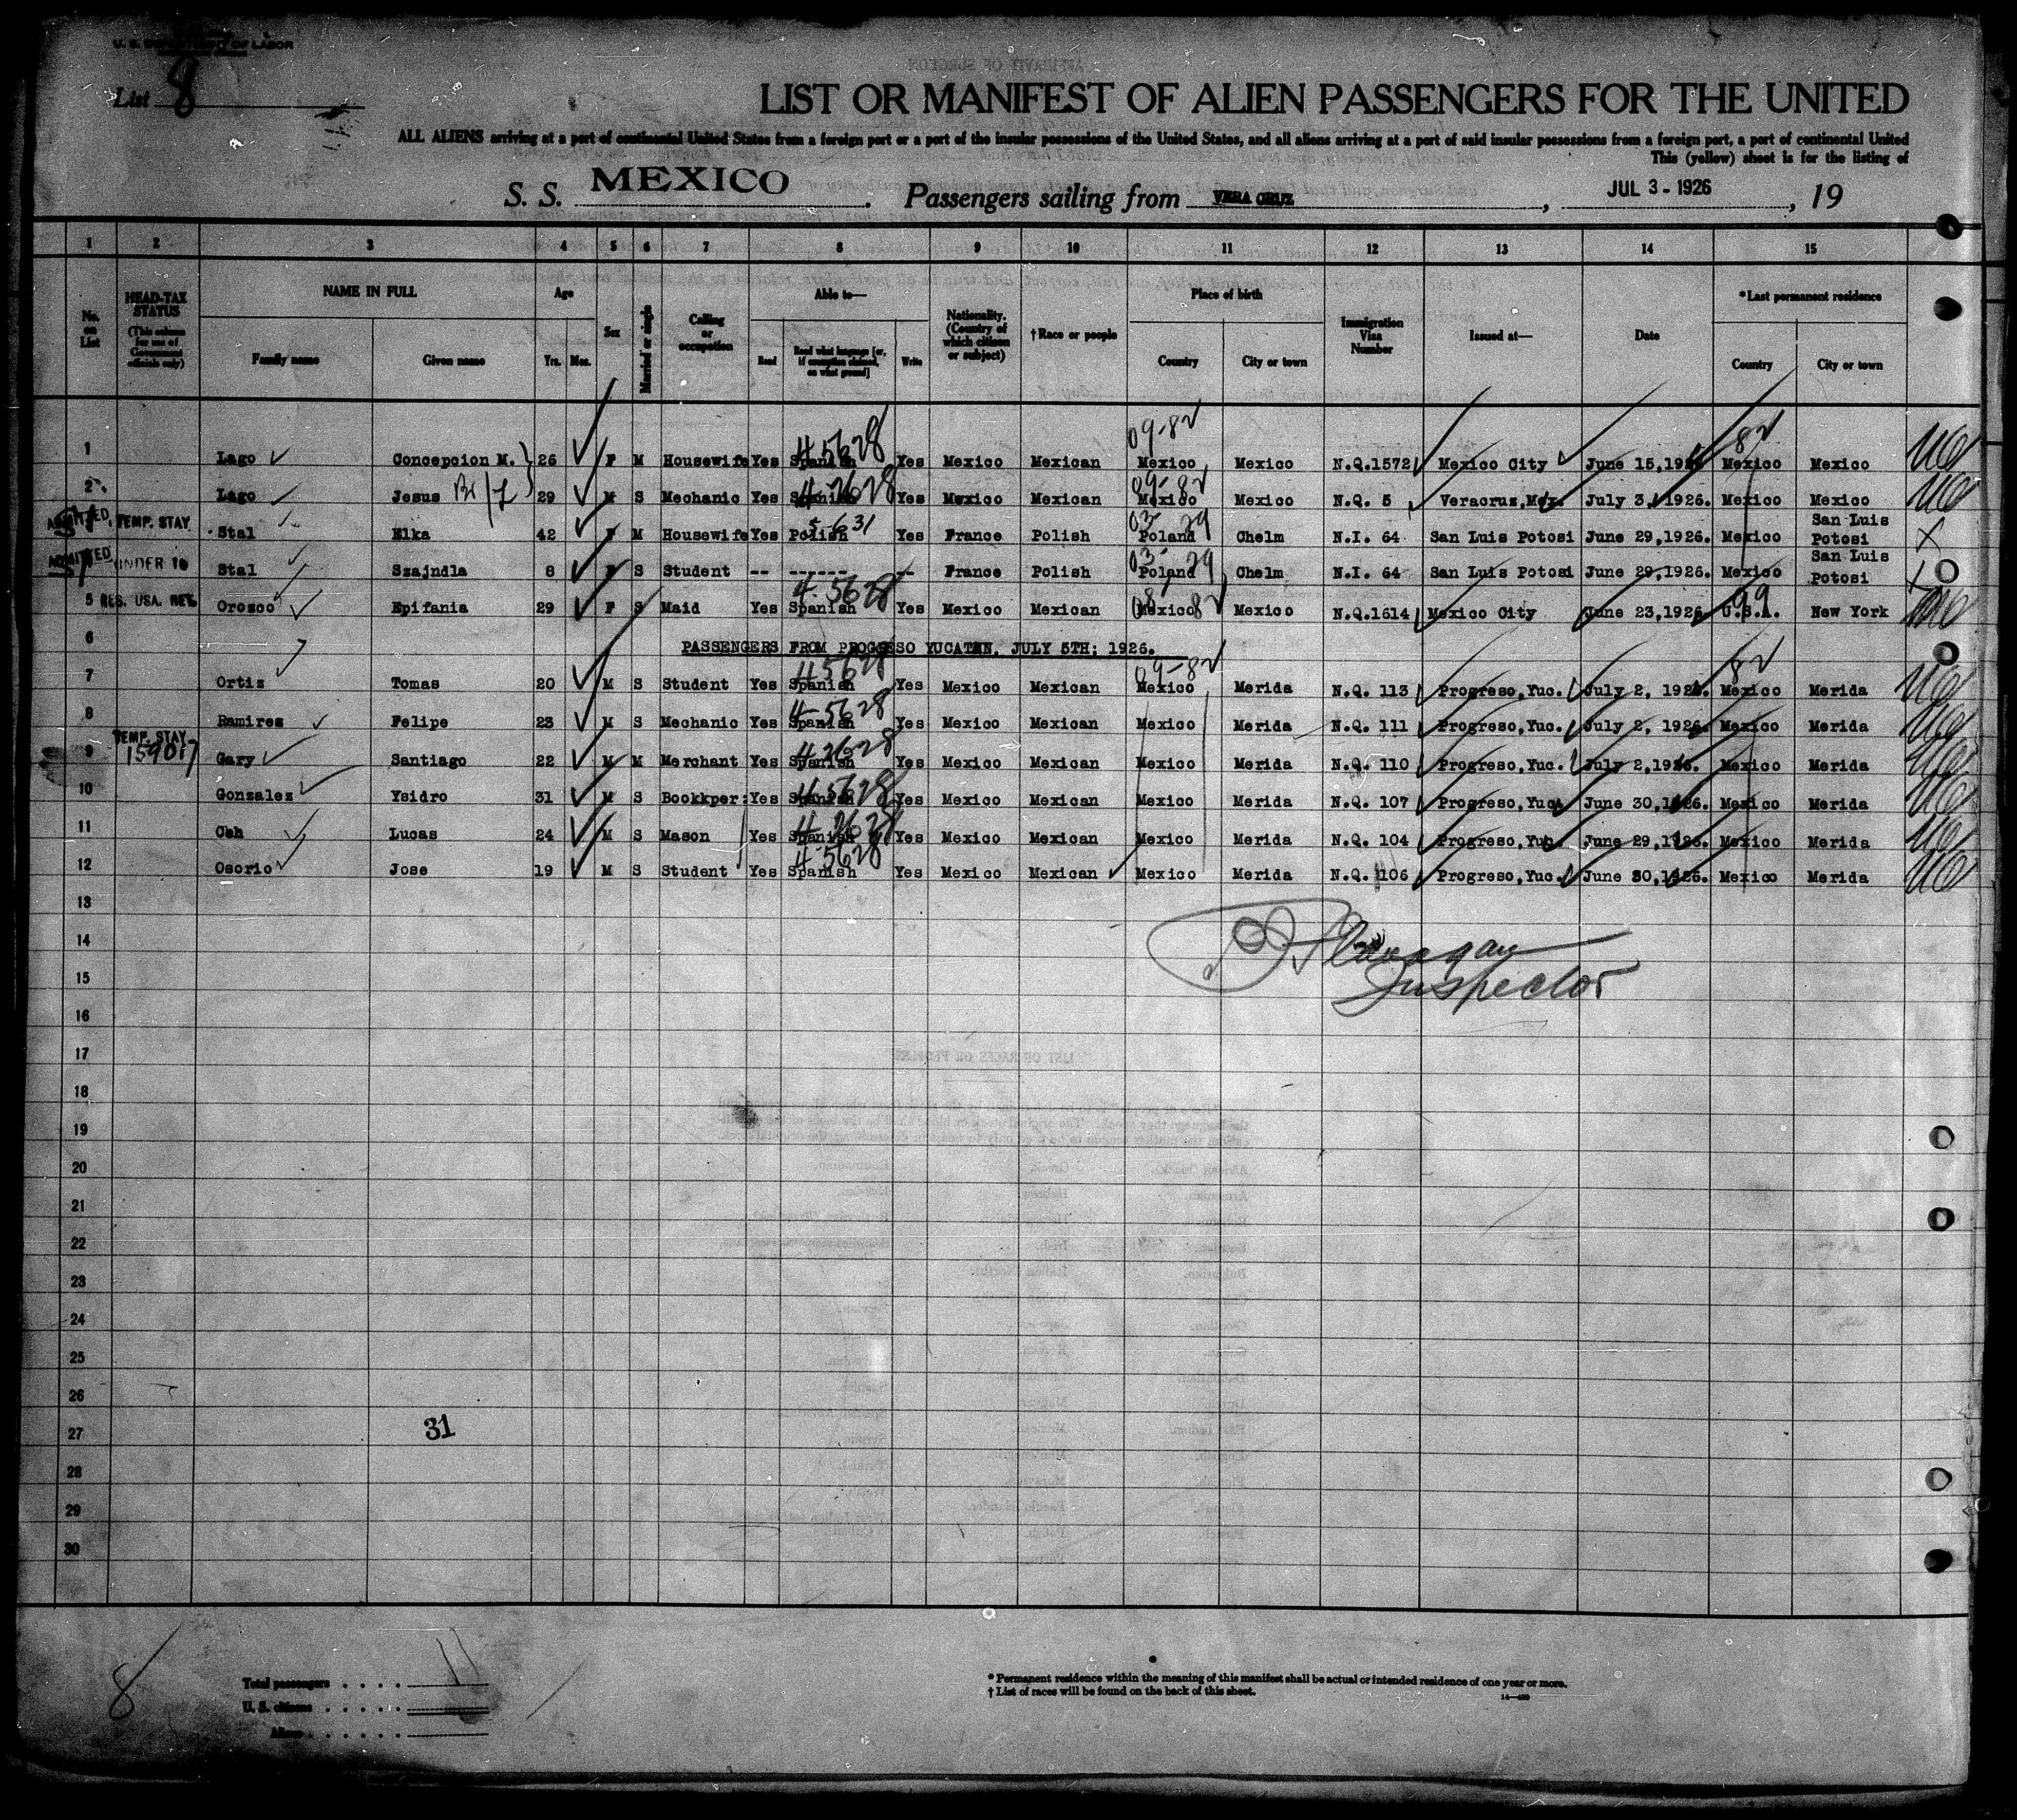 U. S. DEPARTMENT OF LABOR
List 8
LIST OR MANIFEST OF ALIEN PASSENGERS FOR THE UNITED
ALL ALIENS arriving at a port of continental United States from a foreign port or a port of the insular possessions of the United States, and all aliens arriving at a port of said insular possessions from a foreign port, a port of continental United
This (yellow) sheet is for the listing of
S. S. MEXICO. Passengers sailing from VERA CRUZ, JUL 3 - 1926, 19
1 2 3 4 5 6 7 8 9 10 11 12 13 14 15
No. on List
HEAD-TAX STATUS (This column for use of Government officials only)
NAME IN FULL Family name Given name
Age Yrs. Mos.
Sex
Married or single
Calling or occupation
Able to— Read Read what language [or, if exemption claimed, on what ground] Write
Nationality. (Country of which citizen or subject)
†Race or people
Place of birth Country City or town
Immigration Visa Number
Issued at—
Date
*Last permanent residence Country City or town
1 Lago Concepcion M. 26 F M Housewife Yes Spanish 4-5628 Yes Mexico Mexican 09-82 Mexico Mexico N.Q.1572 Mexico City June 15,1926 82 Mexico Mexico
2 Lago Jesus 29 M S Mechanic Yes Spanish 4-2628 Yes Mexico Mexican 09-82 Mexico Mexico N.Q. 5 Veracruz,Mex. July 3, 1926. Mexico Mexico
ADMITTED TEMP. STAY Stal Elka 42 F M Housewife Yes Polish 5-631 Yes France Polish 03-29 Poland Chelm N.I. 64 San Luis Potosi June 29,1926. Mexico San Luis Potosi X
ADMITTED UNDER 16 Stal Szajndla 8 F S Student -- ------ -- France Polish 03-29 Poland Chelm N.I. 64 San Luis Potosi June 29,1926. Mexico San Luis Potosi X
5 RES. USA. RET. Orozco Epifania 29 F S Maid Yes Spanish 4-5628 Yes Mexico Mexican Mexico Mexico N.Q.1614 Mexico City June 23,1926 99 U.S.A. New York
6 PASSENGERS FROM PROGRESO YUCATAN, JULY 5TH: 1926.
7 Ortiz Tomas 20 M S Student Yes Spanish 4-5628 Yes Mexico Mexican 09-82 Mexico Merida N.Q. 113 Progreso,Yuc. July 2, 1926. 82 Mexico Merida
8 Ramirez Felipe 23 M S Mechanic Yes Spanish 4-5628 Yes Mexico Mexican Mexico Merida N.Q. 111 Progreso,Yuc. July 2, 1926. Mexico Merida
9 TEMP. STAY 159017 Gary Santiago 22 M M Merchant Yes Spanish 4-2628 Yes Mexico Mexican Mexico Merida N.Q. 110 Progreso,Yuc. July 2,1926. Mexico Merida
10 Gonzalez Ysidro 31 M S Bookkper: Yes Spanish 4-5628 Yes Mexico Mexican Mexico Merida N.Q. 107 Progreso,Yuc. June 30,1926. Mexico Merida
11 Ceh Lucas 24 M S Mason Yes Spanish 4-2628 Yes Mexico Mexican Mexico Merida N.Q. 104 Progreso,Yuc. June 29,1926. Mexico Merida
12 Osorio Jose 19 M S Student Yes Spanish 4-5628 Yes Mexico Mexican Mexico Merida N.Q. 106 Progreso,Yuc. June 30,1926. Mexico Merida
13
14 Flanagan
15 Inspector
16
17
18
19
20
21
22
23
24
25
26
27 31
28
29
30
8
Total passengers . . . . 11
U. S. citizens . . . . .
Aliens . . . . . .
* Permanent residence within the meaning of this manifest shall be actual or intended residence of one year or more.
† List of races will be found on the back of this sheet.
14—430